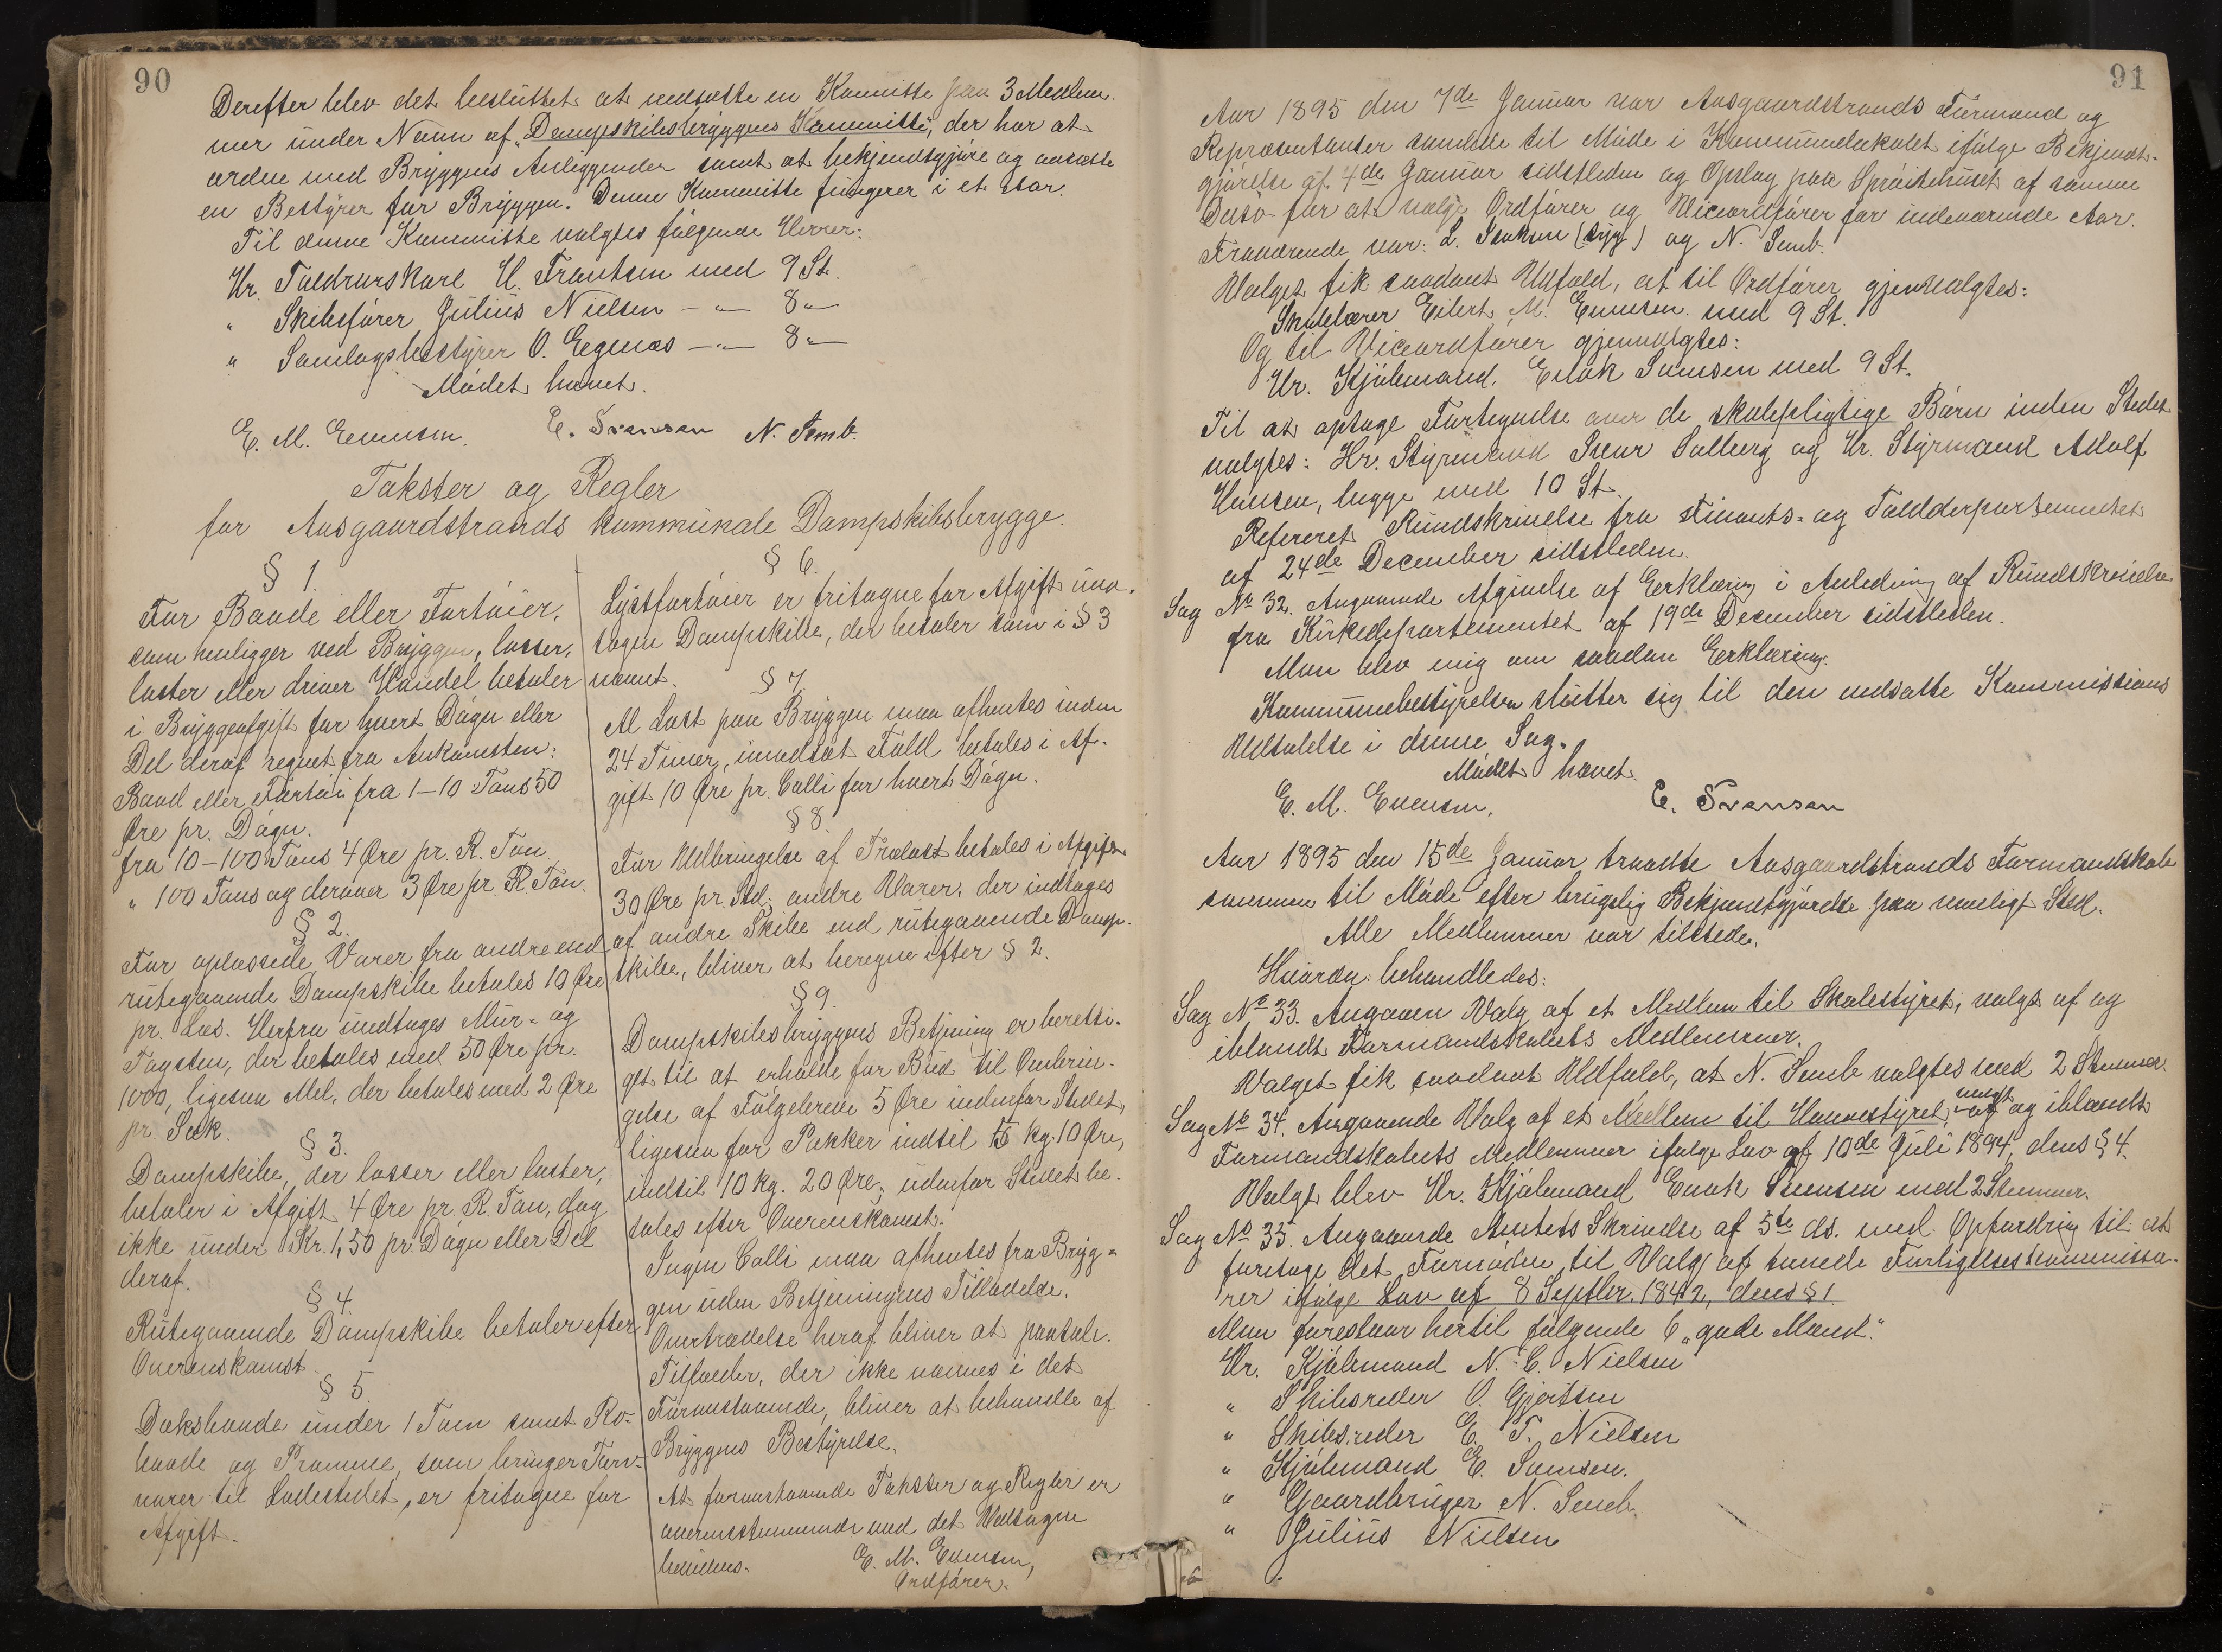 90
Derefter blev det besluttet at nedsætte en Kommitte paa 3 Medlem-
mer under Navn af „Dampskibsbryggens Kommitte", der har at
ordne med Bryggens Anliggender samt at bekjendtgjøre og ansætte
en Bestyrer for Bryggen. Denne Kommitte fungerer i et Aar.
Til denne Kommitte valgtes følgende Herrer:
Hr. Toldrorskarl H. Frantsen med 9 St.
" Skibsfører Julius Nielsen —"— 8 "—
" Samlagsbestyrer O. Eegenæs —"— 8 "—
Mødet hævet.
E. M. Evensen. E. Svensen N. Semb.
Takster og Regler
for Aasgaardstrands kommunale Dampskibsbrygge.
§ 1.
For Baade eller Fartøier,
som henligger ved Bryggen, losser,
laster eller driver Handel betaler
i Bryggeafgift for hvert Døgn eller
Del deraf regnet fra Ankomsten:
Baad eller Fartøi fra 1–10 Tons 50
Øre pr. Døgn.
fra 10–100 Tons 4 Øre pr. R. Ton.
" 100 Tons og derover 3 Øre pr. R. Ton.
§ 2.
For oplossede Varer fra andre end
rutegaaende Dampskibe betales 10 Øre
pr. Læs. Herfra undtages Mur- og
Tagsten, der betales med 50 Øre pr.
1000, ligesaa Mel, der betales med 2 Øre
pr. Sæk.
§ 3.
Dampskibe, der losser eller laster,
betaler i Afgift 4 Øre pr. R. Ton, dog
ikke under Kr. 1,50 pr. Døgn eller Del
deraf.
§ 4.
Rutegaaende Dampskibe betaler efter
Overenskomst.
§ 5.
Dæksbaade under 1 Tom samt Ro-
baade og Pramme, som bringer Torv-
varer til Ladestedet, er fritagne for
Afgift.
§ 6.
Lystfartøier er fritagne for Afgift und-
tagen Dampskibe, der betaler som i § 3
nævnt.
§ 7
Al Last paa Bryggen maa afhentes inden
24 Timer, i modsat Fald betales i Af-
gift 10 Øre pr. Colli for hvert Døgn.
§ 8.
For Udbringelse af Trælast betales i Afgift
30 Øre pr. Std; andre Varer, der indtages
af andre Skibe end rutegaaende Damp-
skibe, bliver at beregne efter § 2.
§ 9.
Dampskibsbryggens Betjening er beretti-
get til at erholde for Bud til Ombrin-
gelse af Følgebreve 5 Øre indenfor Stedet,
ligesaa for Pakker indtil 5 kg. 10 Øre,
indtil 10 kg. 20 Øre; udenfor Stedet be-
tales efter Overenskomst.
Ingen Colli maa afhentes fra Bryg-
gen uden Betjeningens Tilladelse.
Overtrædelse heraf bliver at paatale.
Tilfælder, der ikke nævnes i det
Foranstaaende, bliver at behandle af
Bryggens Bestyrelse.
At foranstaaende Takster og Regler er
overensstemmende med det Vedtagne
bevidnes.
E. M. Evensen,
Ordfører.
91
Aar 1895 den 7de Januar var Aasgaardstrands Formænd og
Repræsentanter samlede til Møde i Kommunelokalet ifølge Bekjendt-
gjørelse af 4de Januar sidstleden og Opslag paa Sprøitehuset af samme
Dato for at vælge Ordfører og Viceordfører for indeværende Aar.
Fraværende var: L. Isaksen (syg) og N. Semb.
Valget fik saadant Udfald, at til Ordfører gjenvalgtes:
Skolelærer Eilert M. Evensen med 9 St.
Og til Viceordfører gjenvalgtes:
Hr. Kjøbmand Enok Svensen med 9 St.
Til at optage Fortegnelse over de skolepligtige Børn inden Stedet
valgtes: Hr. Styrmand Ivar Solberg og Hr. Styrmand Adolf
Hansen, begge med 10 St.
Refereret Rundskrivelse fra Finants- og Toldderpartementet
af 24de December sidstleden.
Sag No 32. Angaaende Afgivelse af Eerklæring i Anledning af Rundskrivelse
fra Kirkedepartementet af 19de December sidstleden.
Man blev enig om saadan Eerklæring:
Kommunebestyrelsen slutter sig til den nedsatte Kommissions
Udtalelse i denne Sag.
Mødet hævet.
E. M. Evensen. E. Svensen
Aar 1895 den 15de Januar traadte Aasgaardstrands Formandskab
sammen til Møde efter brugelig Bekjendtgjørelse paa vanligt Sted.
Alle Medlemmer var tilstede.
Hvorda behandledes:
Sag No 33. Angaaen Valg af et Medlem til Skolestyret, valgt af og
iblandt Formandskabets Medlemmer.
Valget fik saadant Udfald, at N. Semb valgtes med 2 Stemmer.
Sag No 34. Angaaende Valg af et Medlem til Havnestyret, valgt af og iblandt
Formandskabets Medlemmer ifølge Lov af 10de Juli 1894, dens § 4.
Valgt blev Hr. Kjøbmand Enok Svensen med 2 Stemmer.
Sag No 35. Angaaende Amtets Skrivelse af 5te ds. med Opfordring til at
foretage det Fornødne til Valg af tvende Forligelseskommissæ-
rer ifølge Lov af 8 Septbr. 1842, dens § 1.
Man foreslaar hertil følgende 6 „gode Mænd."
Hr. Kjøbmand N. C. Nielsen
" Skibsreder O. Gjertsen
" Skibsreder E. T. Nielsen
" Kjøbmand E. Svensen.
" Gaardbruger N. Semb.
" Julius Nielsen